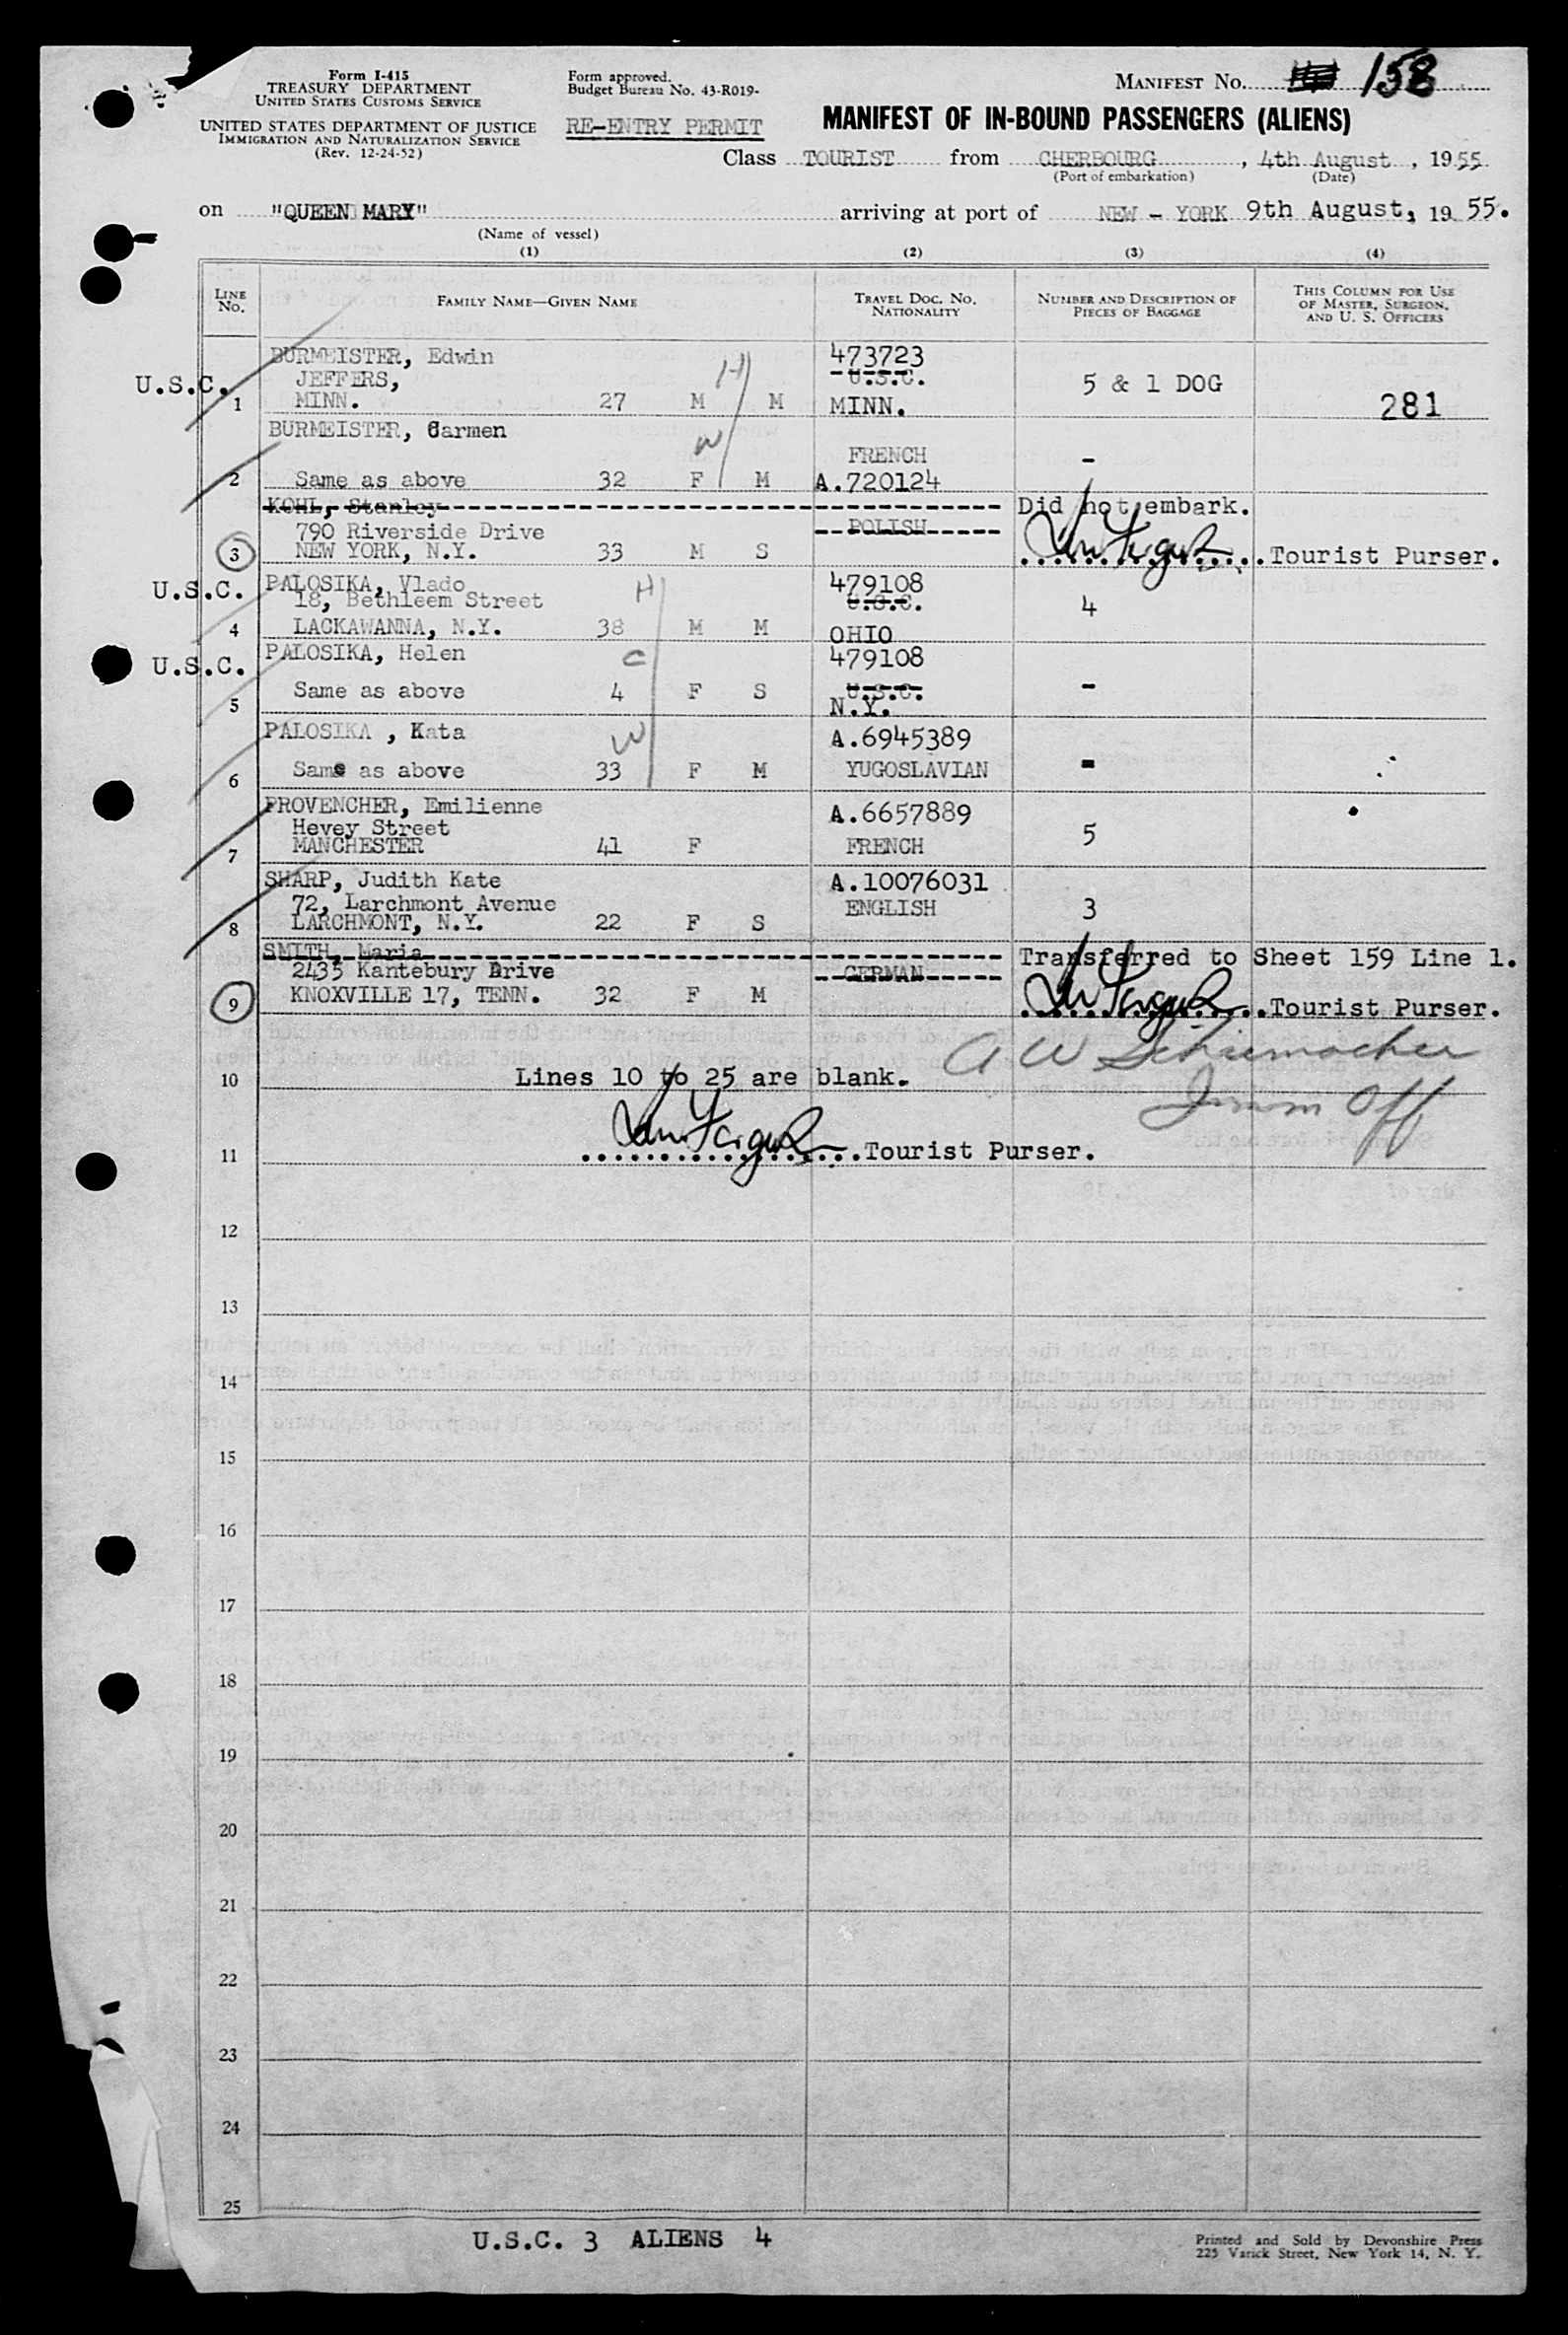 Form I-415
TREASURY DEPARTMENT
UNITED STATES CUSTOMS SERVICE
UNITED STATES DEPARTMENT OF JUSTICE
IMMIGRATION AND NATURALIZATION SERVICE
(Rev. 12-24-52)
Form approved.
Budget Bureau No. 43-R019-
RE-ENTRY PERMIT
MANIFEST No. 158
MANIFEST OF IN-BOUND PASSENGERS (ALIENS)
Class TOURIST from CHERBOURG, 4th August, 1955
(Port of embarkation) (Date)
on "QUEEN MARY" arriving at port of NEW - YORK 9th August, 19 55.
(Name of vessel)
(1) (2) (3) (4)
LINE No. FAMILY NAME—GIVEN NAME TRAVEL DOC. NO. NATIONALITY NUMBER AND DESCRIPTION OF PIECES OF BAGGAGE THIS COLUMN FOR USE OF MASTER, SURGEON, AND U. S. OFFICERS
BURMEISTER, Edwin H 473723
U.S.C. JEFFERS, U.S.C. 5 & 1 DOG
1 MINN. 27 M M MINN. 281
BURMEISTER, Carmen W
FRENCH -
2 Same as above 32 F M A.720124
KOHL, Stanley Did not embark.
790 Riverside Drive POLISH
3 NEW YORK, N.Y. 33 M S Tourist Purser.
U.S.C. PALOSIKA, Vlado H 479108
18, Bethleem Street U.S.C. 4
4 LACKAWANNA, N.Y. 38 M M OHIO
U.S.C. PALOSIKA, Helen C 479108
Same as above 4 F S U.S.C. -
5 N.Y.
PALOSIKA , Kata W A.6945389
6 Same as above 33 F M YUGOSLAVIAN -
PROVENCHER, Emilienne A.6657889
Hevey Street 5
7 MANCHESTER 41 F FRENCH
SHARP, Judith Kate A.10076031
72, Larchmont Avenue ENGLISH 3
8 LARCHMONT, N.Y. 22 F S
SMITH, Maria Transferred to Sheet 159 Line 1.
2435 Kantebury Drive GERMAN
9 KNOXVILLE 17, TENN. 32 F M Tourist Purser.
A W Schiemacher
10 Lines 10 to 25 are blank.
Imm Off
11 Tourist Purser.
12
13
14
15
16
17
18
19
20
21
22
23
24
25
U.S.C. 3 ALIENS 4
Printed and Sold by Devonshire Press
225 Varick Street, New York 14, N. Y.